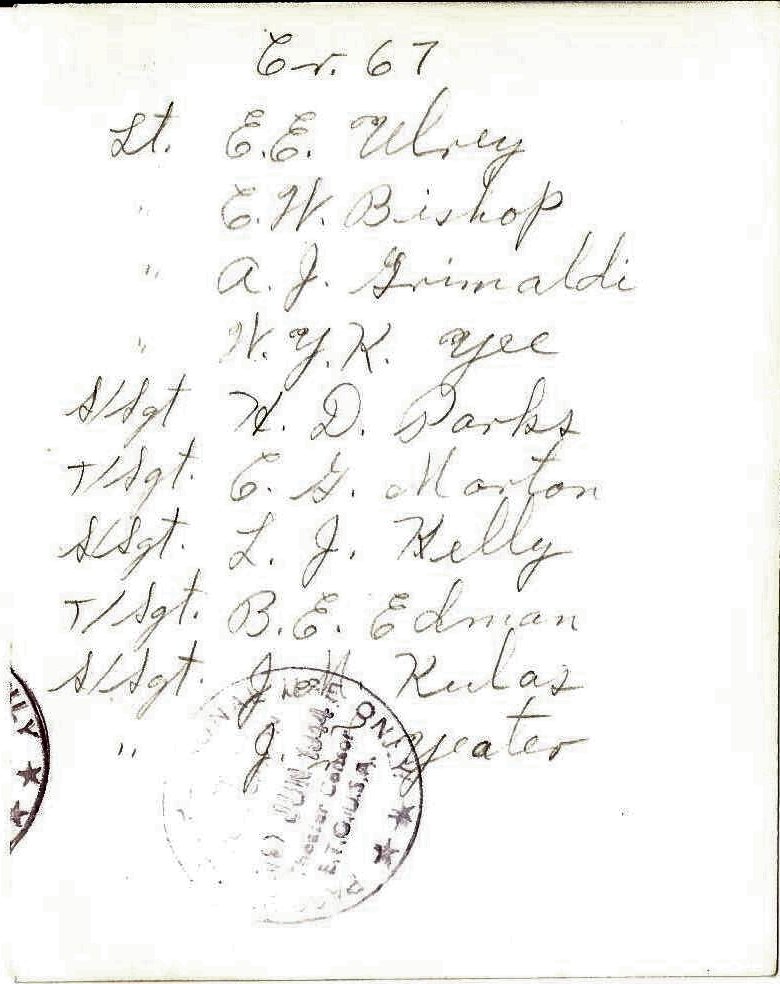 Cr. 67
Lt. E.E. Ulrey
" E.W. Bishop
" A. J. Grimaldi
" W. Y. K. Yee
S/Sgt H. D. Parks
T/Sgt. C. G. Morton
S/Sgt. L. J. Kelly
T/Sgt. B. E. Edman
S/Sgt. J. Kulas
" J. Yeater
ONLY
JUN 1944
Theater Censor
E.T.O.U.S.A.
LY